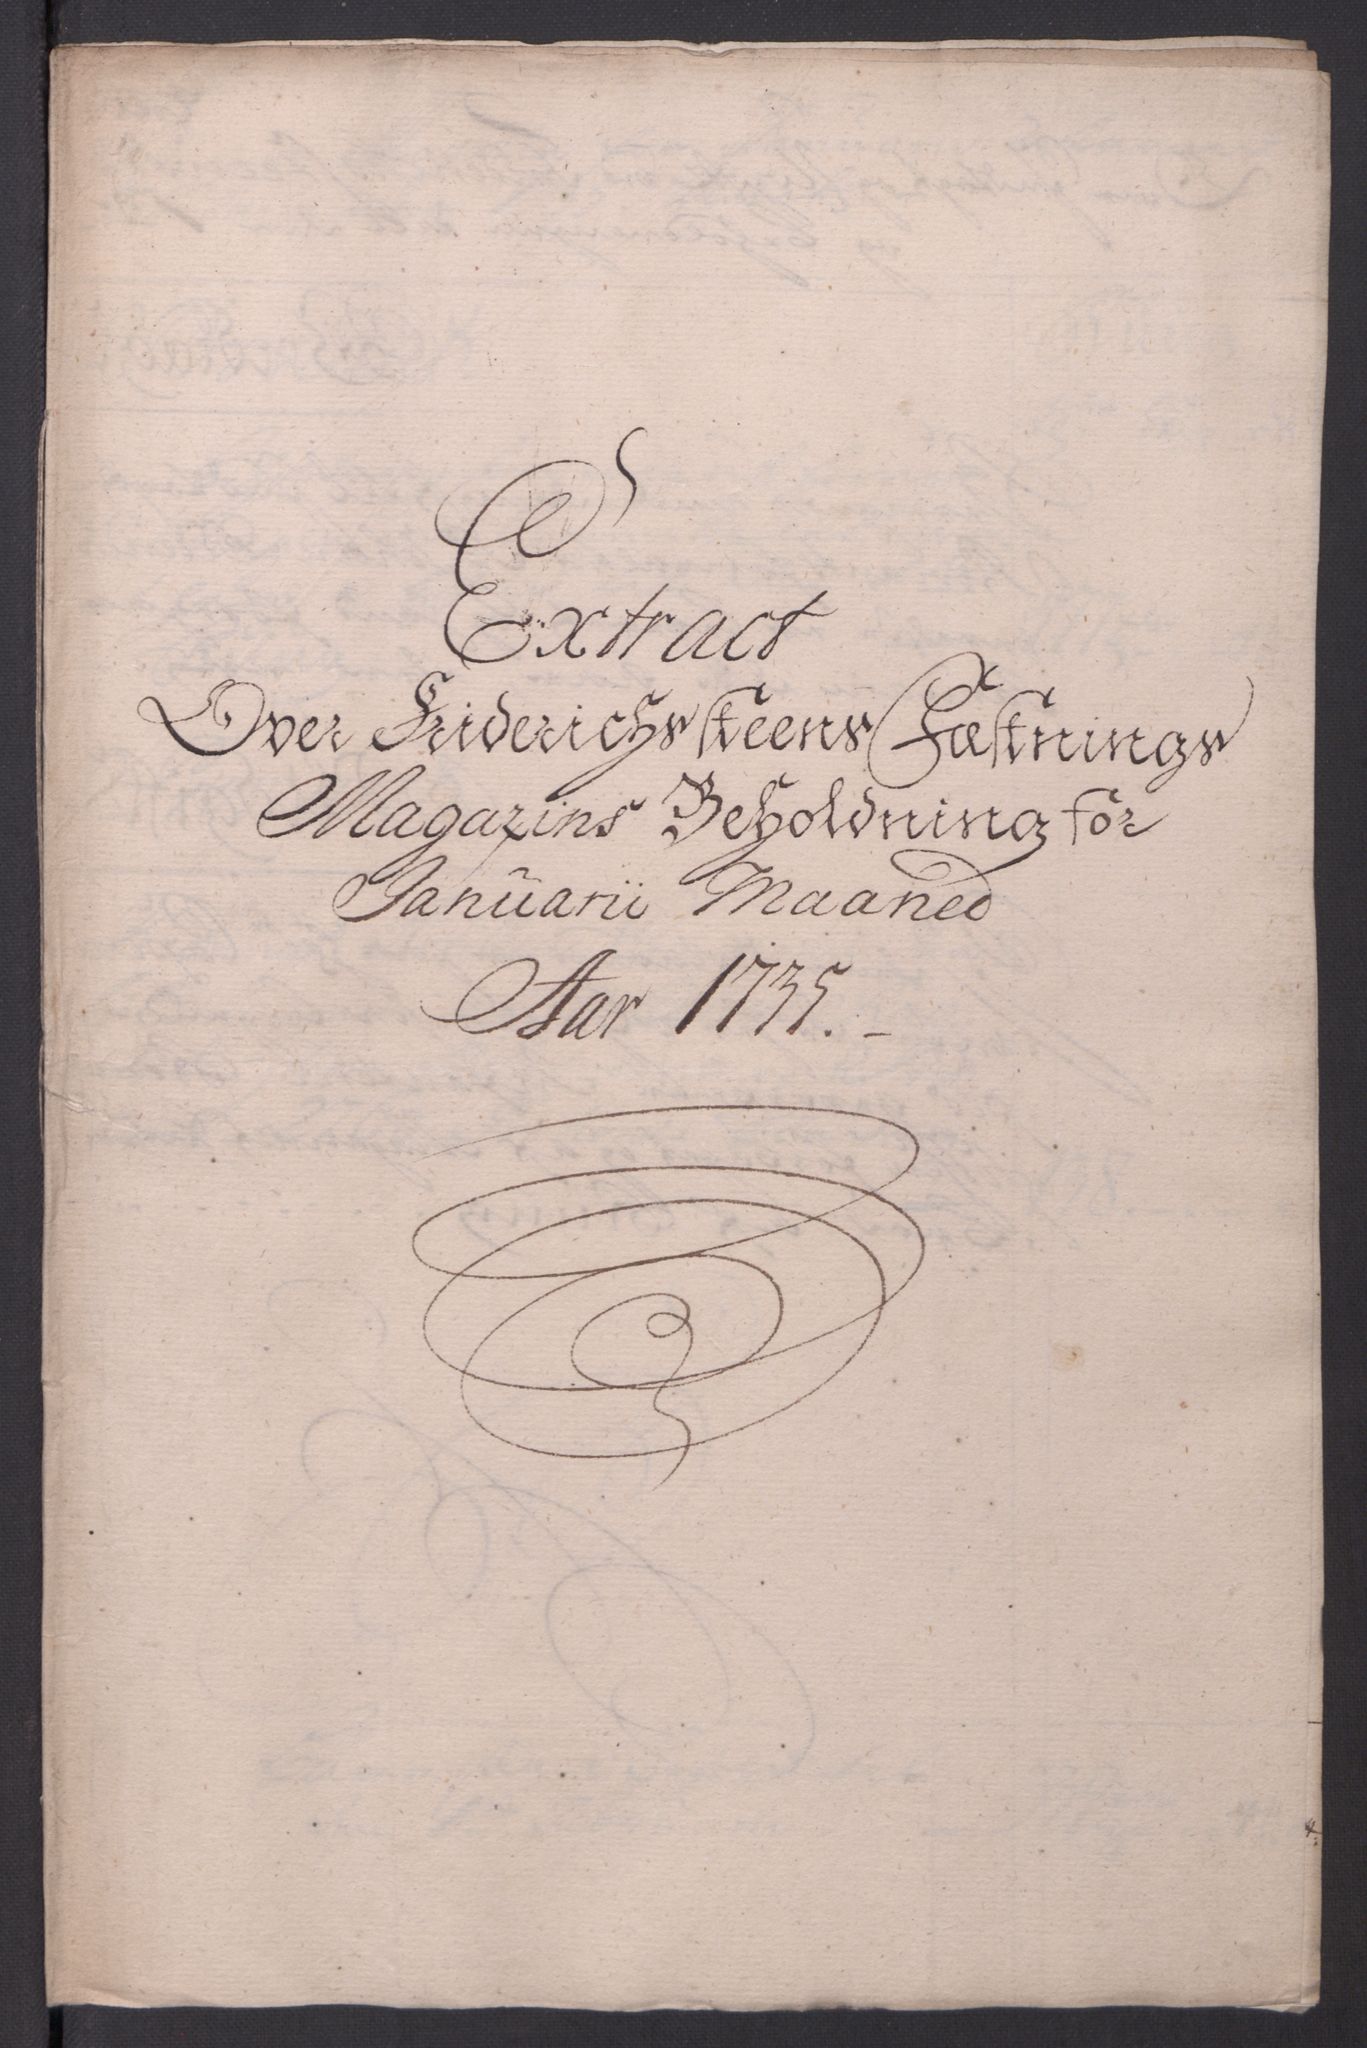 Extract
Over Friderichs steens Fæstnings
Magazins Beholdning for
Januarii Maaned
Aar 1735.